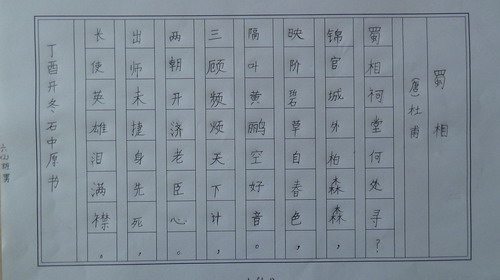 蜀相
(唐)杜甫
蜀相祠堂何处寻?
锦官城外柏森森,
映阶碧草自春色,
隔叶黄鹂空好音。
三顾频烦天下计,
两朝开济老臣心。
出师未捷身先死,
长使英雄泪满襟。
丁酉开冬石中厚书